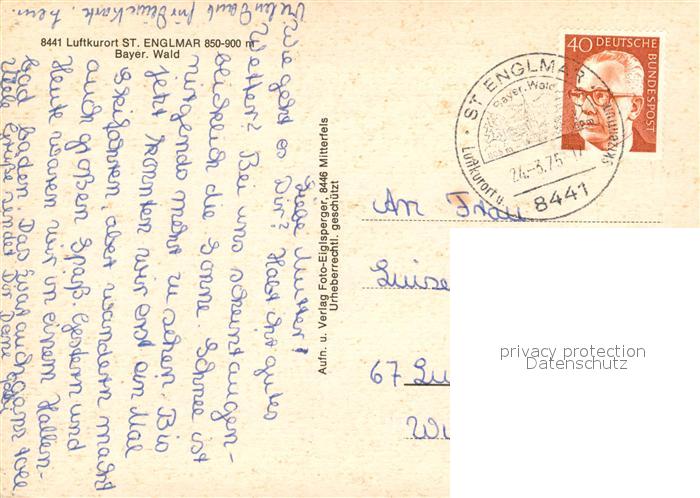 8441 Luftkurort ST. ENGLMAR 850-900 m
Bayer. Wald
Vielen Dank für
Liebe Mutter!
Wie geht es Dir? Habt ihr gutes
Wetter? Bei uns scheint augen-
blicklich die Sonne. Schnee ist
nirgends mehr zu sehen. Bis
jetzt konnten wir erst ein Mal
Skifahren, aber wandern macht
auch großen Spaß. Gestern und
Heute waren wir in einem Hallen-
bad baden. Das war auch ganz toll.
Viele Grüße sendet Dir Deine
Aufn. u. Verlag Foto-Eiglsperger, 8446 Mitterfels
Urheberrechtl. geschützt
40 DEUTSCHE
BUNDESPOST
ST ENGLMAR
Bayer. Wald
Luftkurort u.
Skizentrum
8441
An Frau
Luise
67 Lu
Wi
privacy protection
Datenschutz